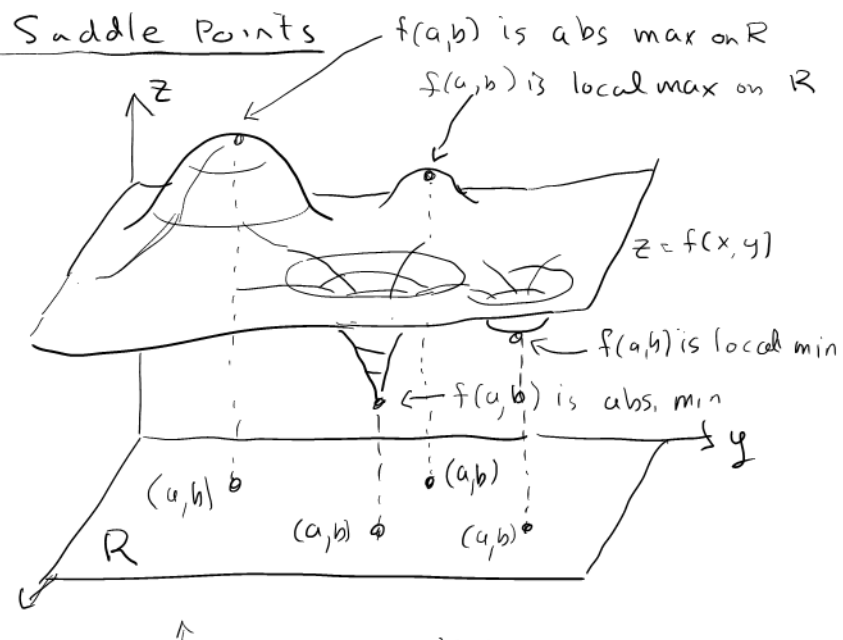 Saddle Points
f(a,b) is abs max on R
f(a,b) is local max on R
z
z = f(x,y)
f(a,b) is local min
f(a,b) is abs. min
y
(a,b)
(a,b)
(a,b)
(a,b)
R